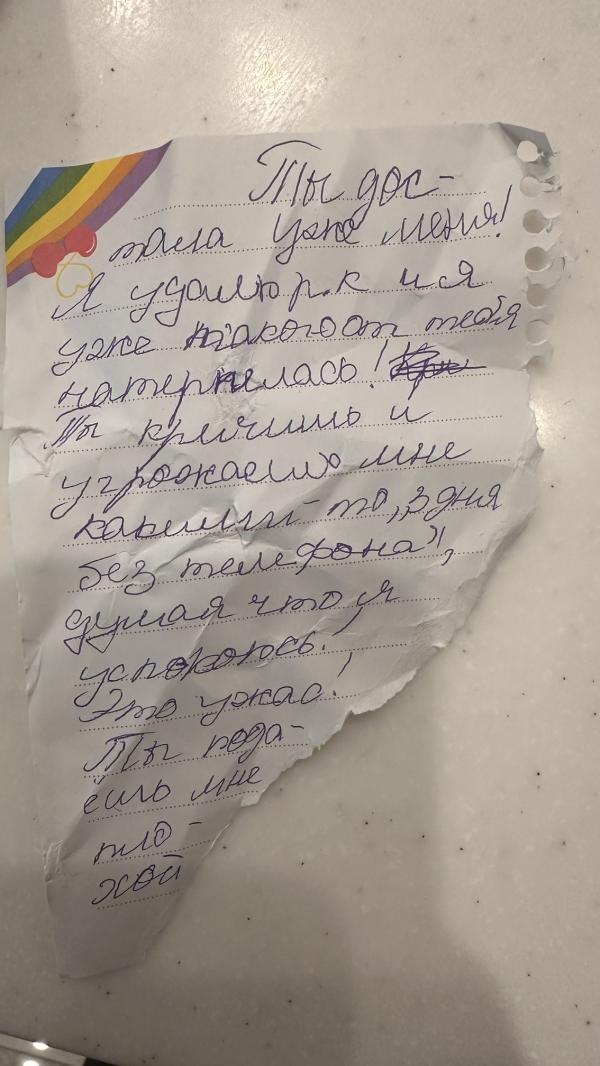 Ты дос-
тала уже меня!
Я удалю р.к и я
уже такого от тебя
натерпелась!
Ты кричишь и
угрожаешь мне
какими-то,,3 дня
без телефона",
думая что я
успокоюсь!
Это ужас!
Ты пода-
ёшь мне
пло-
хой